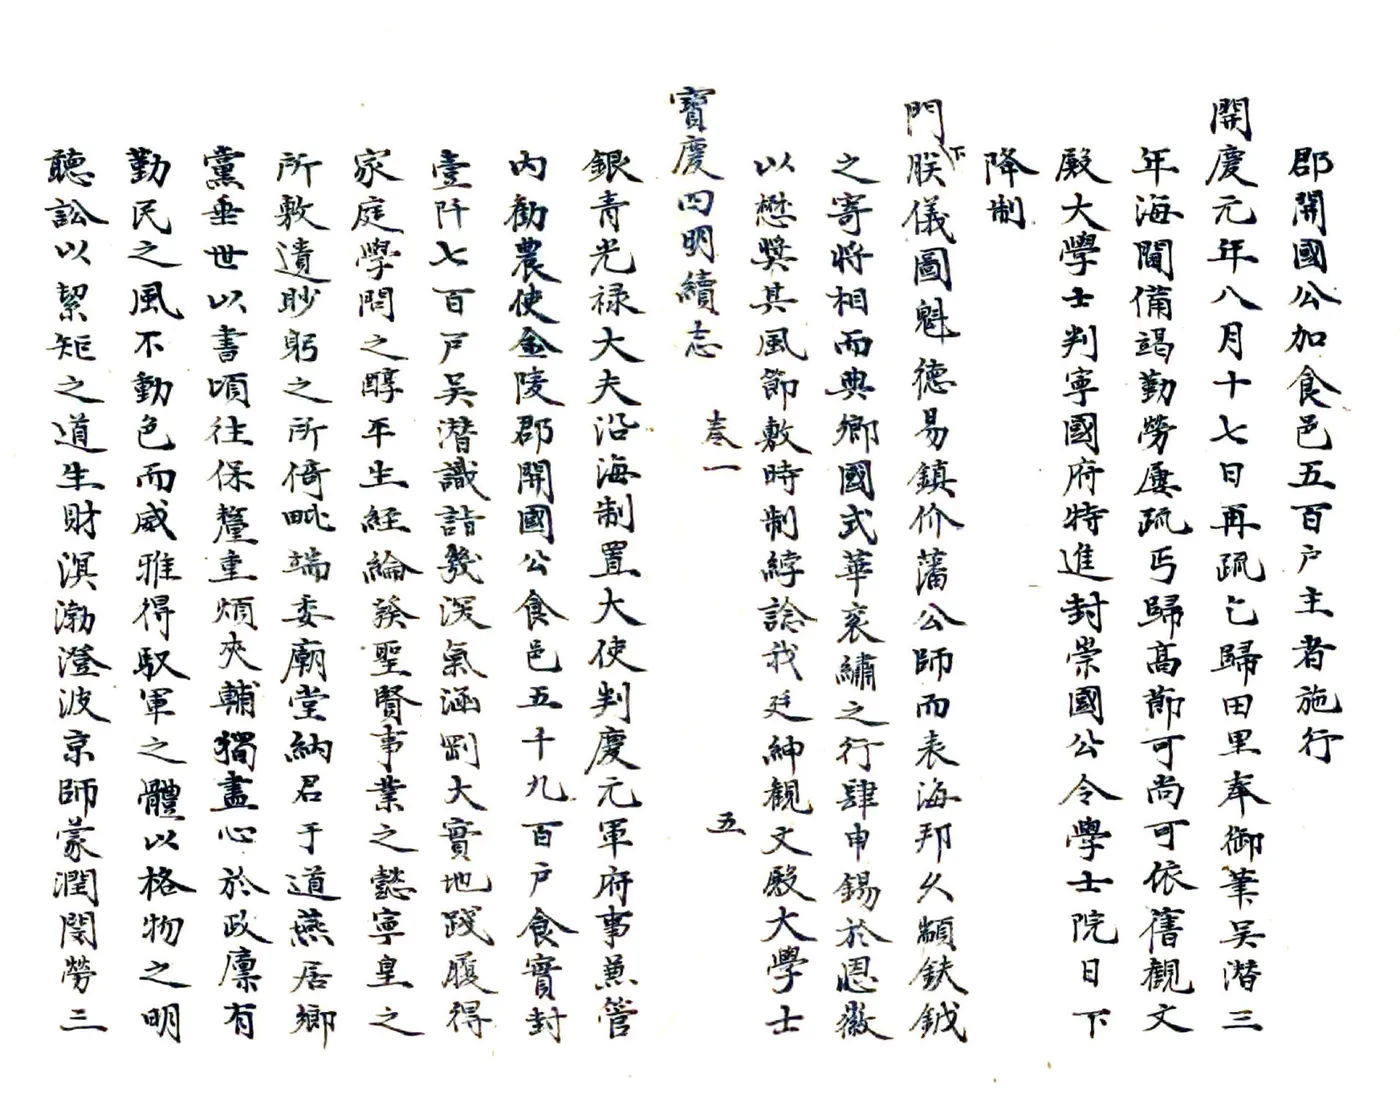 郡開國公加食邑五百戶主者施行
開慶元年八月十七日再疏乞歸田里奉御筆吴潛三
年海閫備竭勤勞屢疏丐歸高節可尚可依舊觀文
殿大學士判寧國府特進封崇國公令學士院日下
降制
門下朕儀圖魁德易鎮价藩公師而表海邦久顓鈇鉞
之寄將相而典鄉國式華衮繡之行肆申錫於恩徽
以懋奬其風節敷時制綍諗我廷紳觀文殿大學士
寳慶四明續志 卷一 五
銀青光禄大夫沿海制置大使判慶元軍府事兼管
内勸農使金陵郡開國公食邑五千九百戶食實封
壹阡七百戶吴潛識詣幾深氣涵剛大實地踐履得
家庭學問之醇平生經綸發聖賢事業之懿寧皇之
所敷遺眇躬之所倚毗端委廟堂納君于道燕居鄉
黨垂世以書頃往保釐重煩夾輔獨盡心於政廪有
勤民之風不動色而威雅得馭軍之體以格物之明
聽訟以絜矩之道生財溟渤澄波京師蒙潤閔勞三